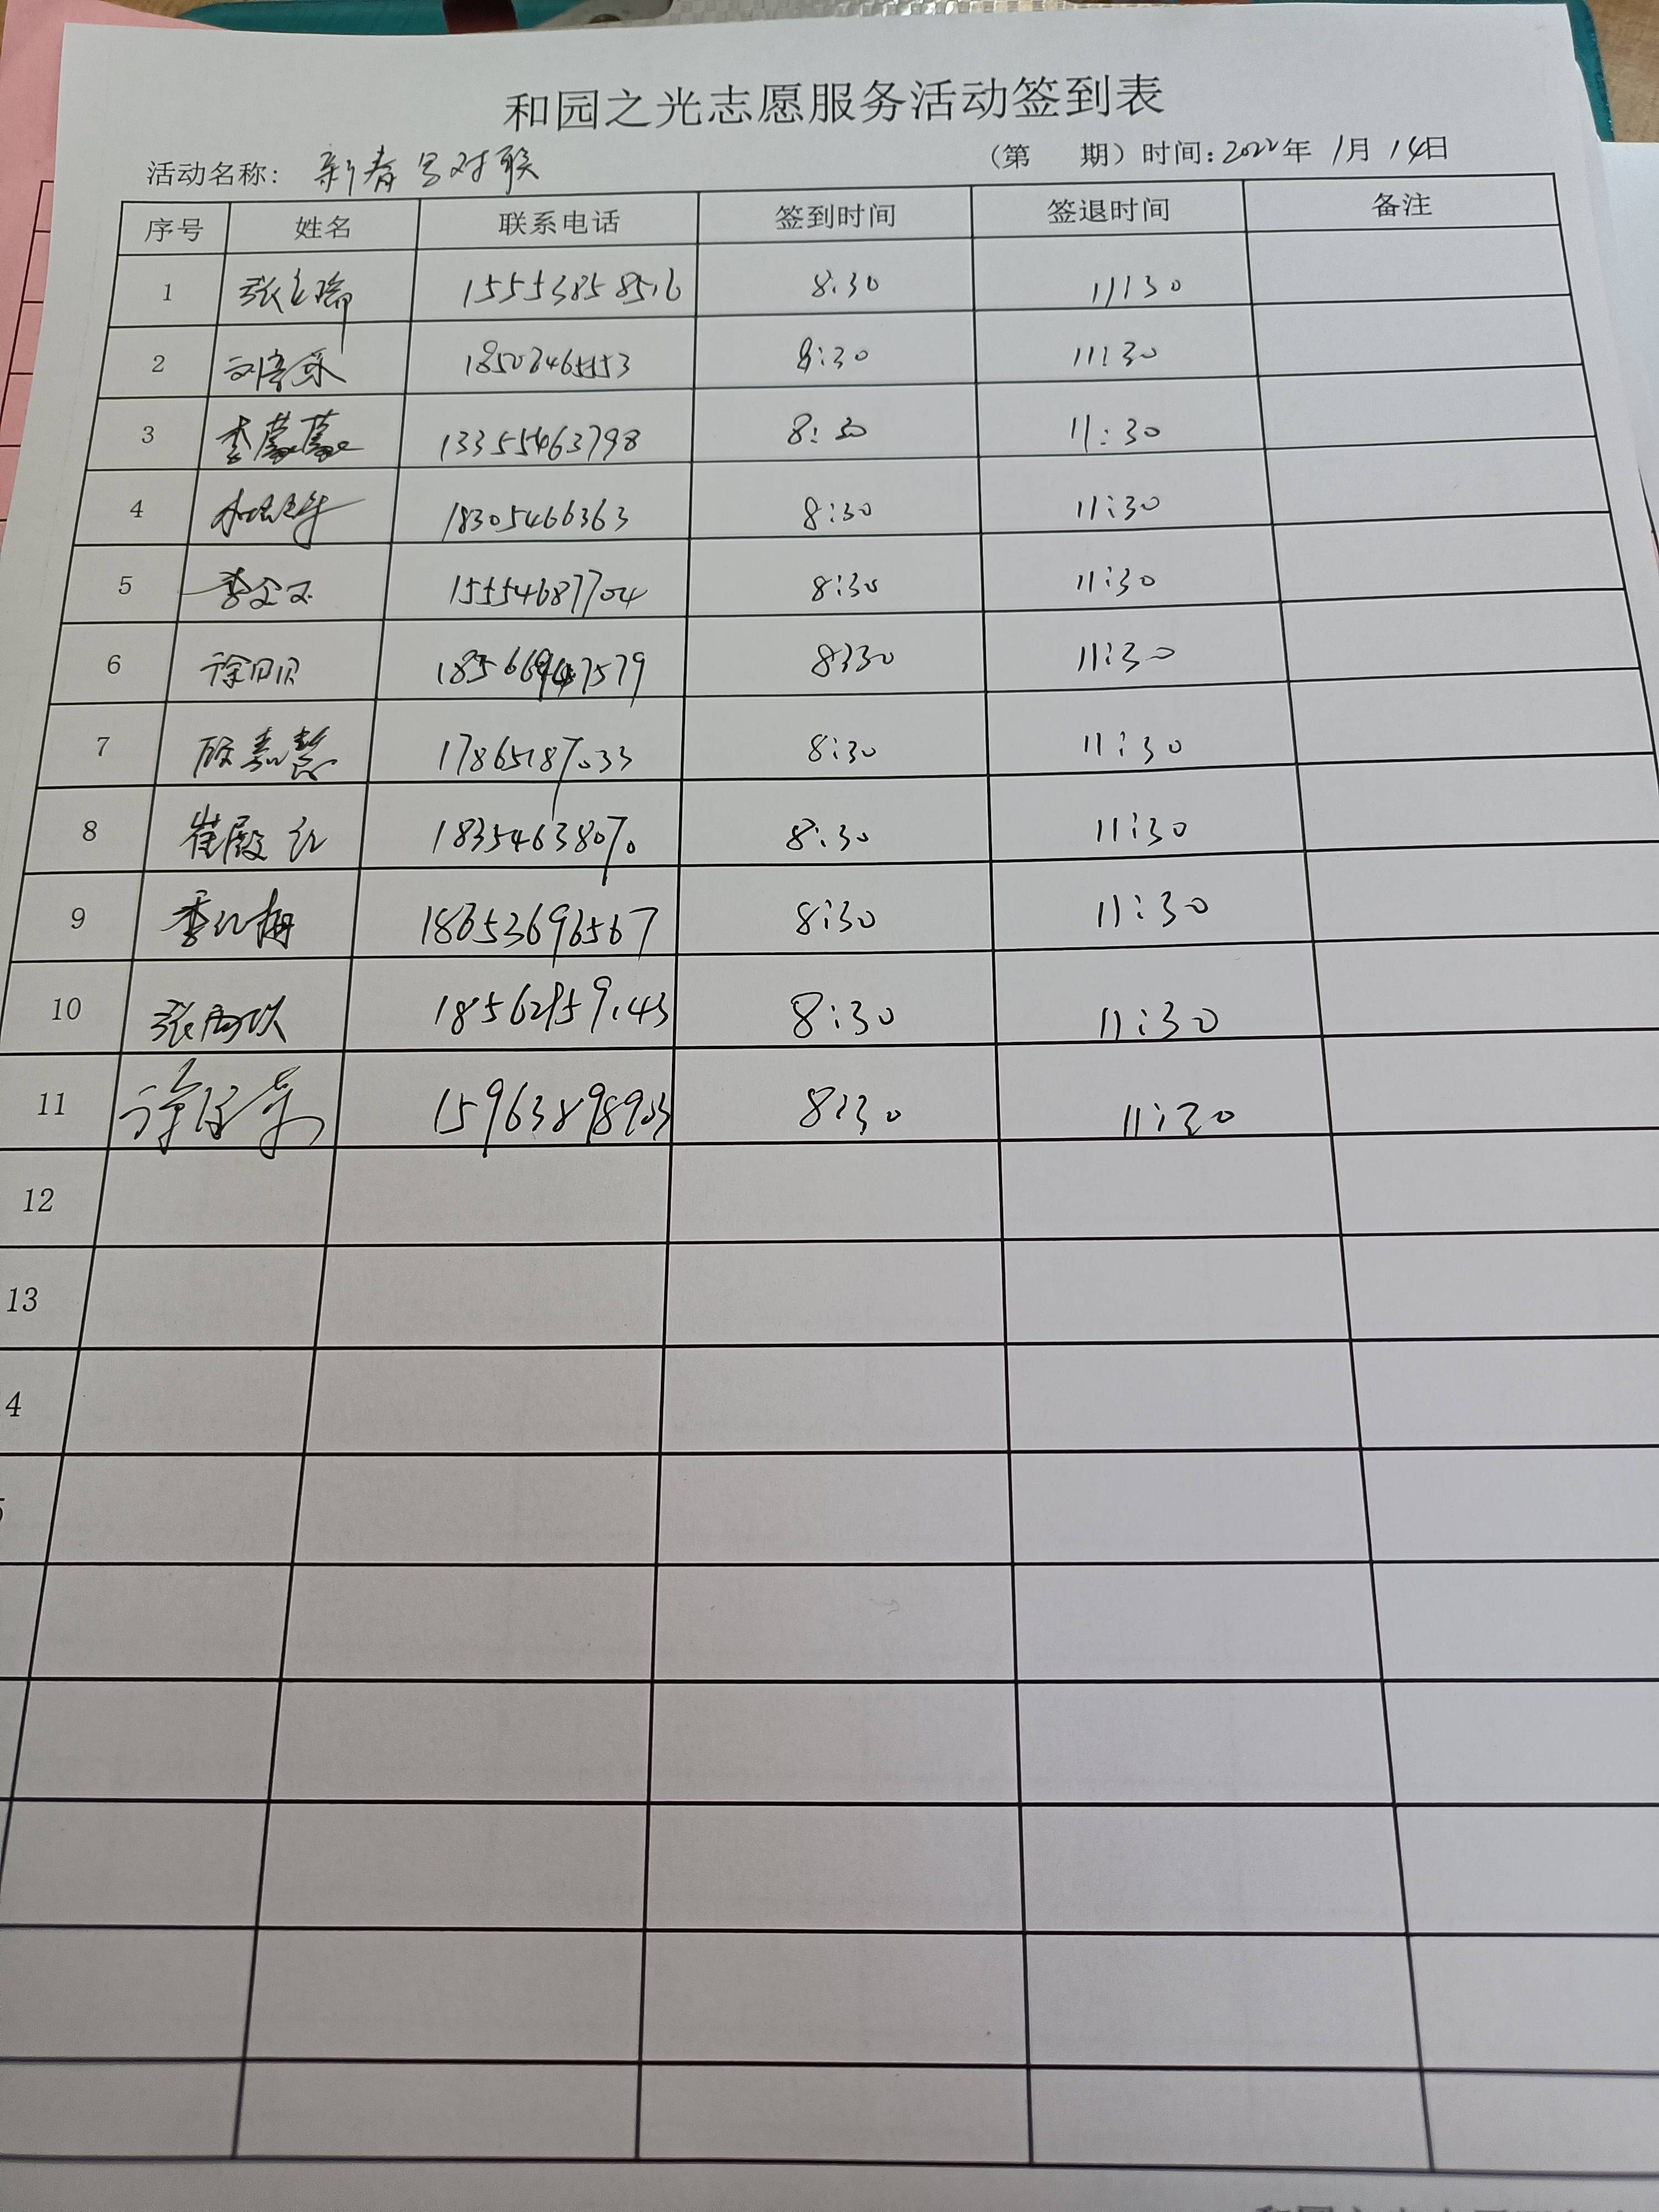 和园之光志愿服务活动签到表
活动名称: 新春写对联 (第 期) 时间: 2022年 1月 14日
序号 姓名 联系电话 签到时间 签退时间 备注
1 张立瑞 15553858516 8:30 11:30
2 8:30 11:30
3 李蒙蒙 13355463798 8:30 11:30
4 18305466363 8:30 11:30
5 15554687704 8:30 11:30
6 徐贝贝 8:30 11:30
7 顾嘉慧 17865187033 8:30 11:30
8 崔殿红 18354638070 8:30 11:30
9 李红梅 18653696567 8:30 11:30
10 8:30 11:30
11 15963898903 8:30 11:30
12
13
4